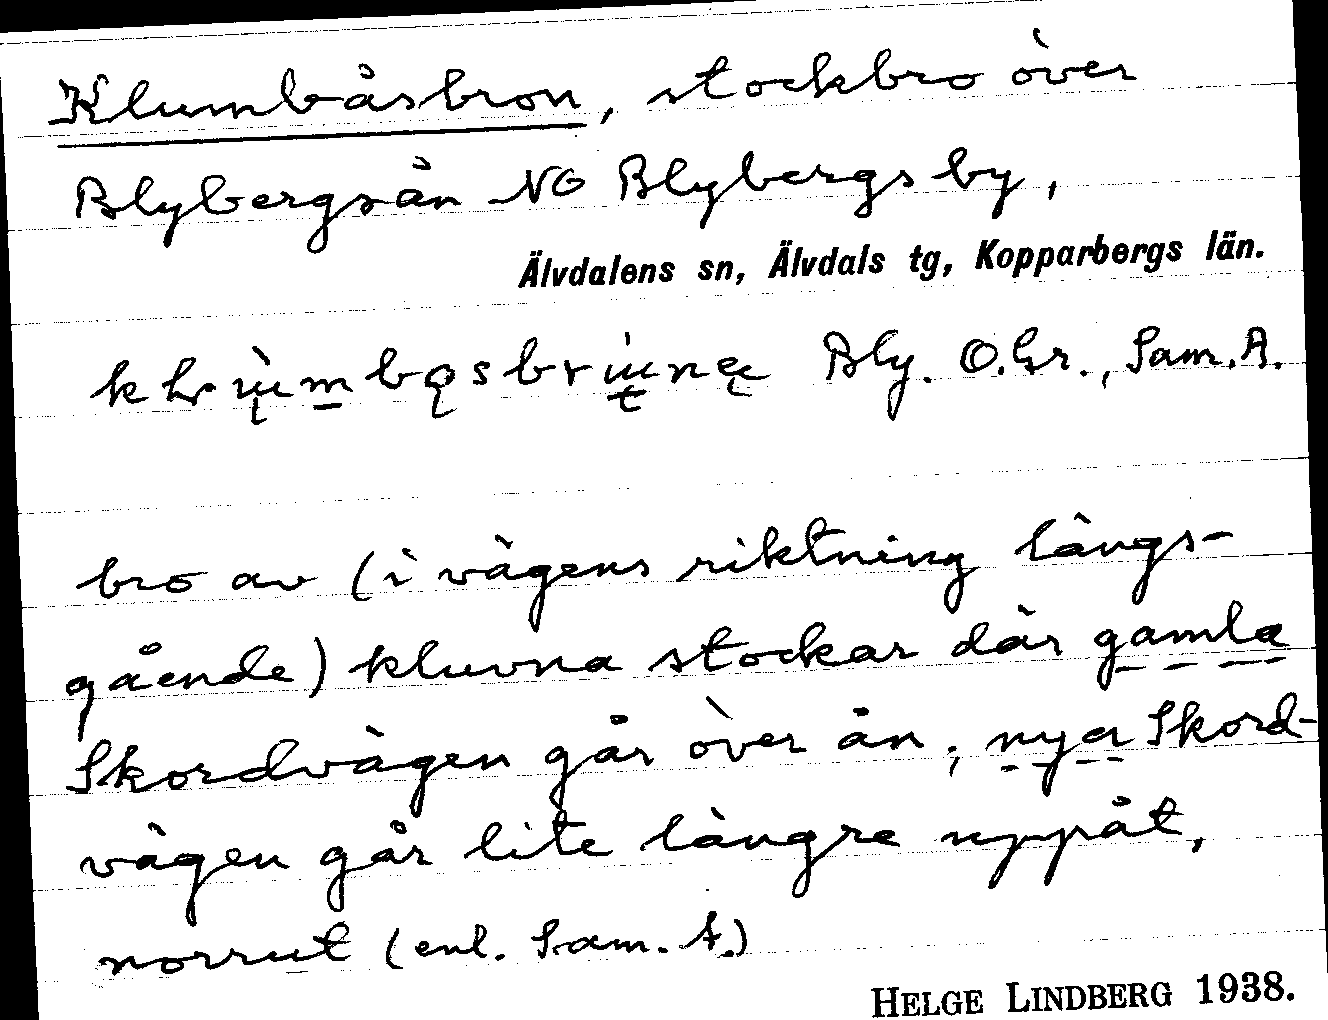 Klumbåsbron, stockbro över
Blybergsån NO Blybergs by,
Älvdalens sn, Älvdals tg, Kopparbergs län.
Bly. O.Gr., Sam. A.
bro av (i vägens riktning längs-
gående) kluvna stockar där gamla
Skordvägen går över ån, nya Skord-
vägen går lite längre uppåt,
norrut (enl. Sam. A.)
HELGE LINDBERG 1938.